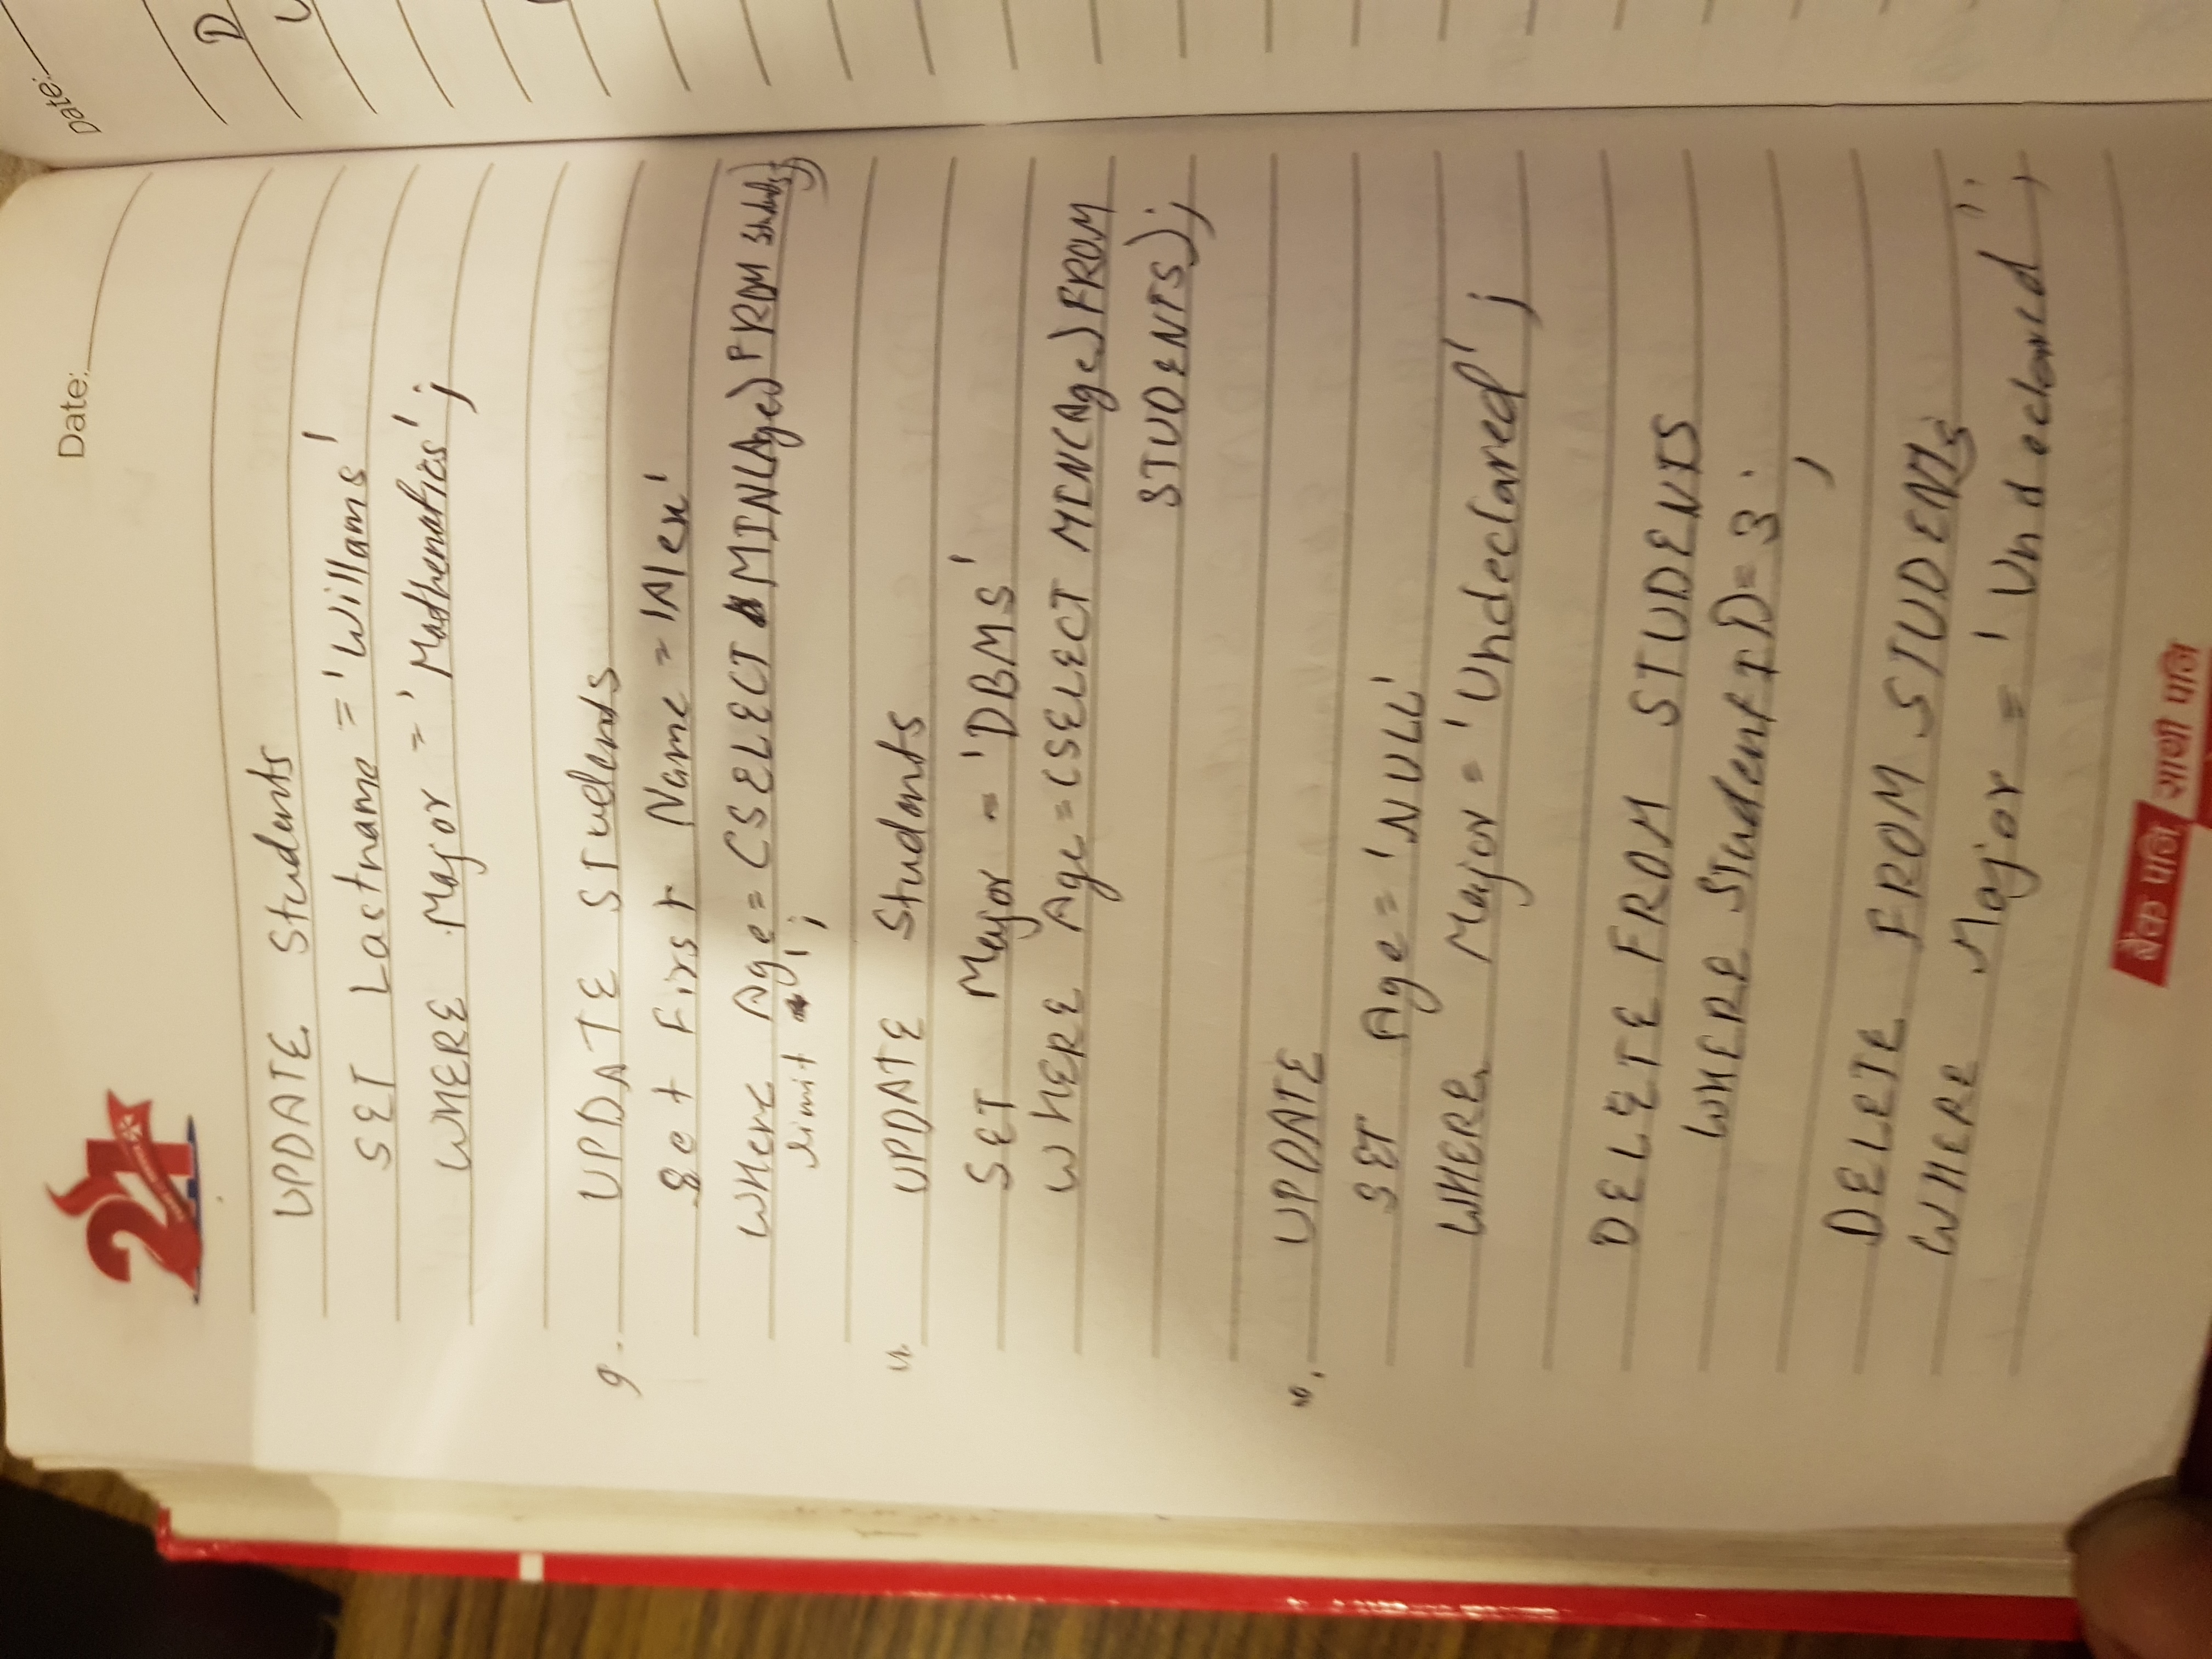 21
Date:
UPDATE Students
SET Lastname = 'Willams'
WHERE Major = 'Mathematics' ;
9.
UPDATE Students
Set First Name = 'Alex'
Where Age = (SELECT MIN(Age) FROM Students)
limit 1 ;
UPDATE Students
SET Major = 'DBMS'
WHERE Age = (SELECT MIN(Age) FROM
STUDENTS);
UPDATE
SET Age = 'NULL'
WHERE Major = 'Undeclared' ;
DELETE FROM STUDENTS
WHERE StudentID = 3 ;
DELETE FROM STUDENTS
WHERE Major = 'Undeclared' ;
बैंक पनि साथी पनि
Date:
D
U